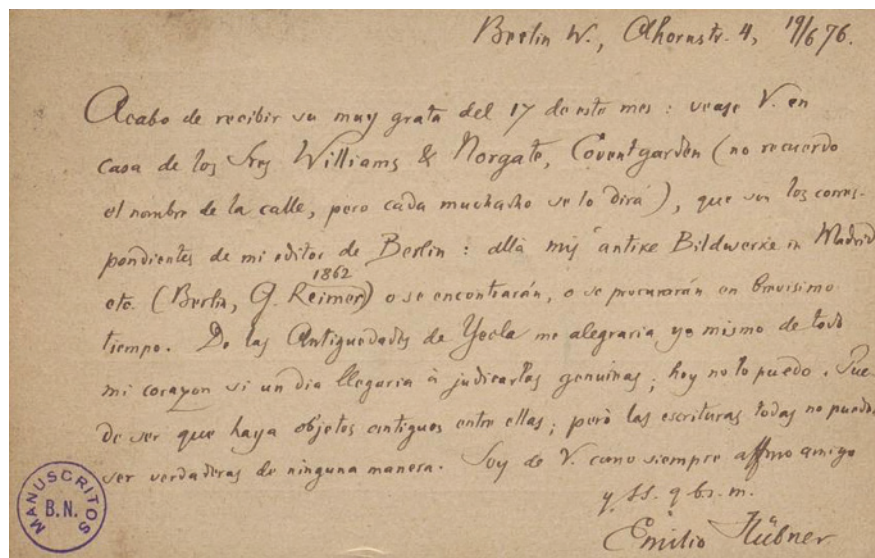 Berlin W., Ahornstr. 4, 19/6 76.
Acabo de recibir su muy grata del 17 de este mes : vease V. en
casa de los Sres Williams & Norgate, Coventgarden (no recuerdo
el nombre de la calle, pero cada muchacho se lo dirá), que son los corres-
pondientes de mi editor de Berlin : allá mis antike Bildwerke in Madrid
etc. (Berlin, G. Reimer 1862) o se encontrarán, o se procurarán en brevisimo
tiempo. De las Antiguedades de Yecla me alegraria yo mismo de todo
mi corazon si un dia llegaria à judicarlas genuinas; hoy no lo puedo. Pue-
de ser que haya objetos antiguos entre ellas; pero las escrituras todas no pueden
ser verdaderas de ninguna manera. Soy de V. como siempre affmo amigo
y ss. q. b. s. m.
Emilio Hübner
MANUSCRITOS
B.N.